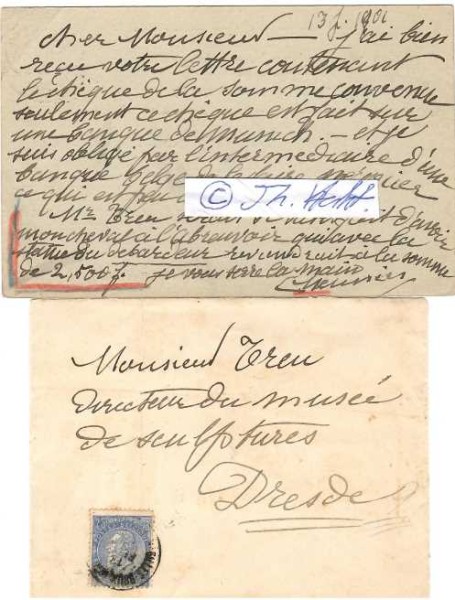 13 f. 1901
Cher Monsieur – j'ai bien
reçu votre lettre contenant
le chèque de la somme convenue
seulement ce chèque est fait sur
une banque de Munich. – et je
suis obligé par l'intermédiaire d'une
banque belge de faire
ce qui
© J. H. Hehl
Mr Treu
mon cheval à l'abreuvoir qui avec la
statue du débardeur reviendrait à la somme
de 2,500 f. je vous serre la main
CMeunier
Monsieur Treu
Directeur du musée
de sculptures
Dresde